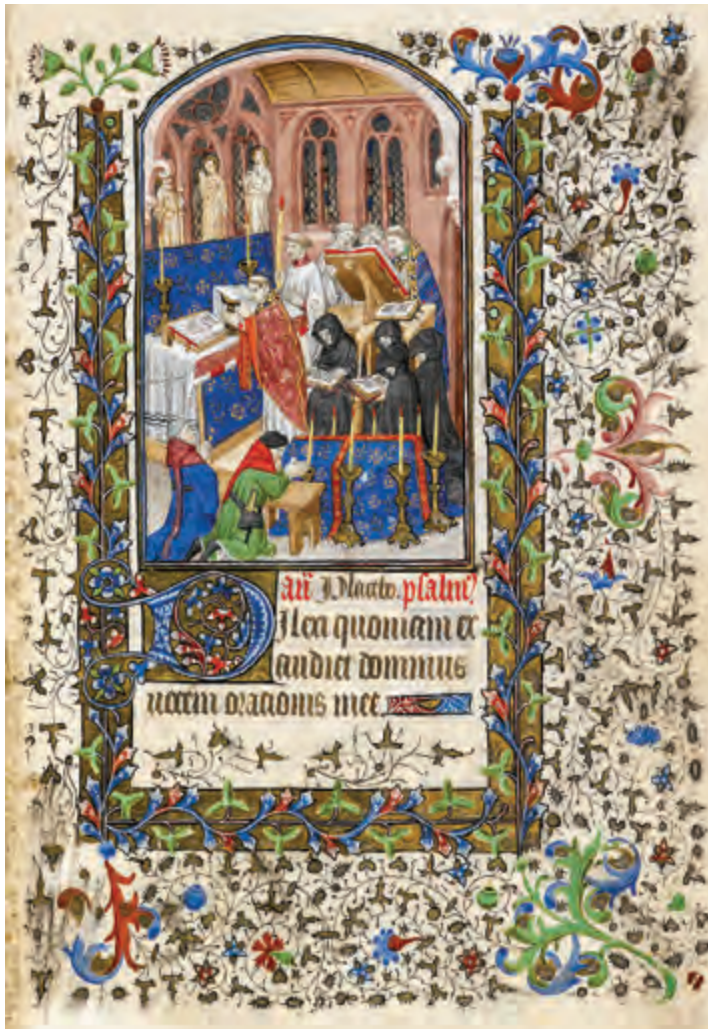 añ. Placebo. psalm̃⁹
Dilexi quoniam ex
audiet dominus
uocem orationis mee.